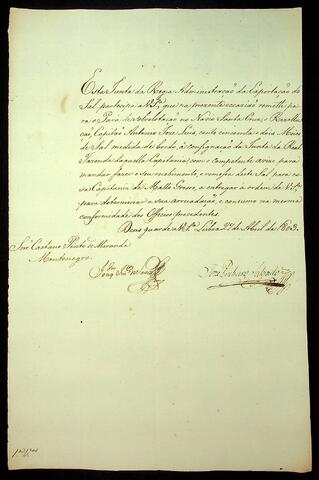 Esta Junta da Regia Administração da Exportação do
Sal participa a V.S.ª, que na prezente occazião remette pa-
ra o Pará de sobrelotação no Navio Santa Cruz,
Capitão Antonio Joze Luis, cento cincoenta e dois Moios
de Sal medida de bordo, á consignação da Junta da Real
Fazenda daquella Capitania; com o competente avizo para
mandar fazer o seu recebimento, e remessa deste Sal para es-
sa Capitania de Matto Groço, a entregar á ordem de V.S.ª
para determinar a sua arrecadação, e consumo na mesma
conformidade dos Officios precedentes.
Deos guarde a V.S.ª Lisboa 27 de Abril de 1803.
Snr. Caetano Pinto de Miranda
Montenegro.